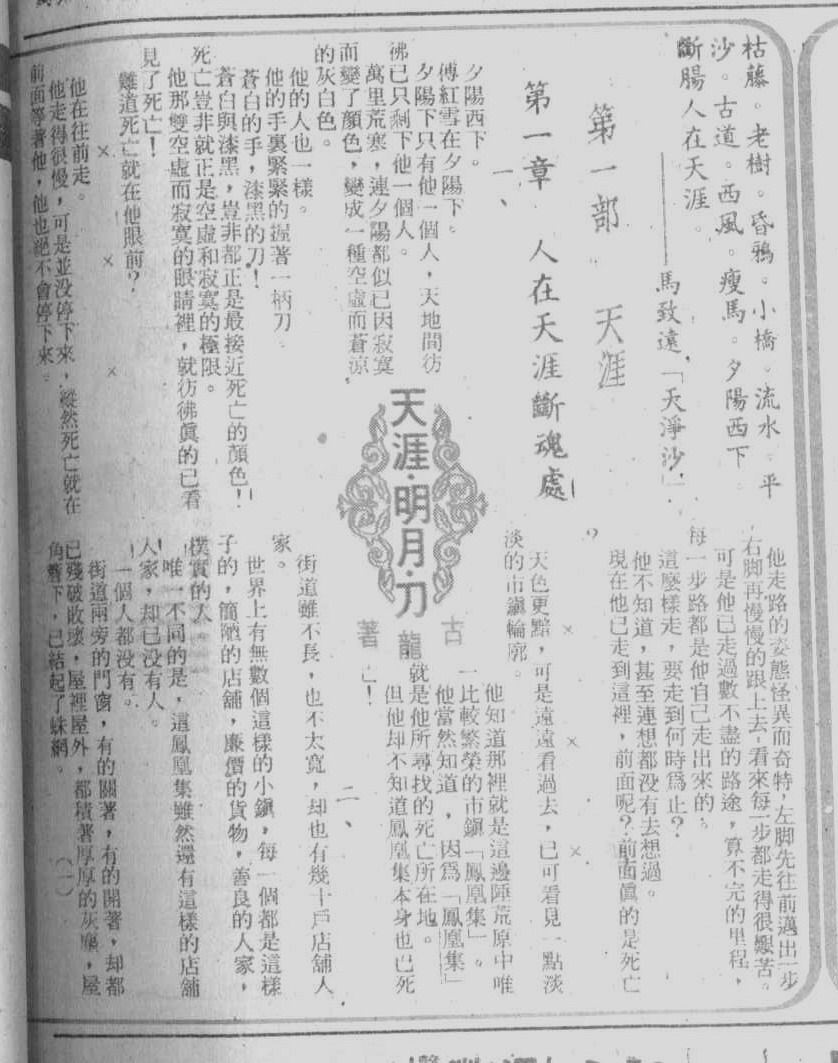 枯藤。老樹。昏鴉。小橋。流水。平
沙。古道。西風。瘦馬。夕陽西下。
斷腸人在天涯。
——馬致遠「天淨沙」
第一部 天涯
第一章 人在天涯斷魂處
一、
夕陽西下。
傅紅雪在夕陽下。
夕陽下只有他一個人，天地間彷
彿已只剩下他一個人。
萬里荒寒，連夕陽都似已因寂寞
而變了顏色，變成一種空虛而蒼涼
的灰白色。
他的人也一樣。
他的手裏緊緊的握著一柄刀。
蒼白的手，漆黑的刀！
蒼白與漆黑，豈非都正是最接近死亡的顏色！
死亡豈非就正是空虛和寂寞的極限。
他那雙空虛而寂寞的眼睛裡，就彷彿眞的已看
見了死亡！
難道死亡就在他眼前？
× × ×
他在往前走。
他走得很慢，可是並没停下來，縱然死亡就在
前面等著他，他也絕不會停下來。
他走路的姿態怪異而奇特，左脚先往前邁出一步
，右脚再慢慢的跟上去，看來每一步都走得很艱苦。
可是他已走過數不盡的路途，算不完的里程，
每一步路都是他自己走出來的。
這麼樣走，要走到何時爲止？
他不知道，甚至連想都没有去想過。
現在他已走到這裡，前面呢？前面眞的是死亡
？
× ×
天色更黯，可是遠遠看過去，已可看見一點淡
淡的市鎭輪廓。
他知道那裡就是這邊陲荒原中唯
一比較繁榮的市鎭「鳳凰集」。
他當然知道，因爲「鳳凰集」
就是他所尋找的死亡所在地。
但他却不知道鳳凰集本身也已死
亡！
天涯·明月·刀
古龍著
二、
街道雖不長，也不太寬，却也有幾十戶店舖人
家。
世界上有無數個這樣的小鎭，每一個都是這樣
子的，簡陋的店舖，廉價的貨物，善良的人家，
樸實的人。
唯一不同的是，這鳳凰集雖然還有這樣的店舖
人家，却已没有人。
一個人都没有。
街道兩旁的門窗，有的關著，有的開著，却都
已殘破敗壞，屋裡屋外，都積著厚厚的灰塵，屋
角簷下，已結起了蛛網。
（一）